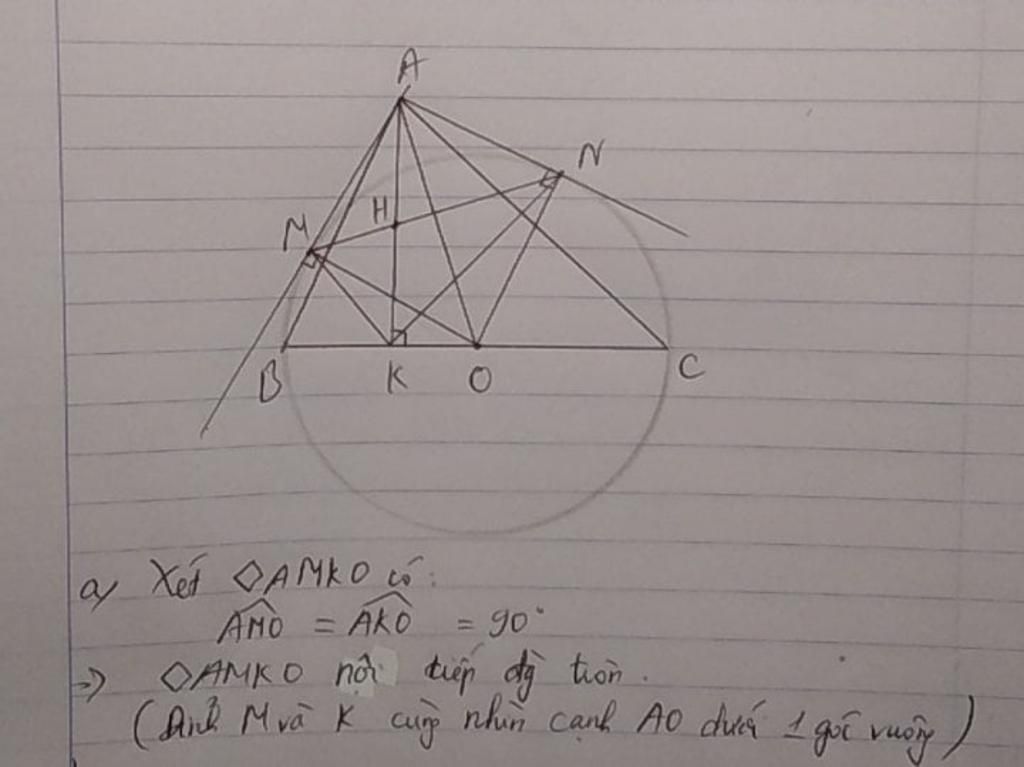 A
N
H
M
B
K
O
C
a) Xét ◇AMKO có:
AM̂O = AK̂O = 90°
=> ◇AMKO nội tiếp đg tròn.
(Đỉnh M và K cùng nhìn cạnh AO dưới 1 góc vuông)